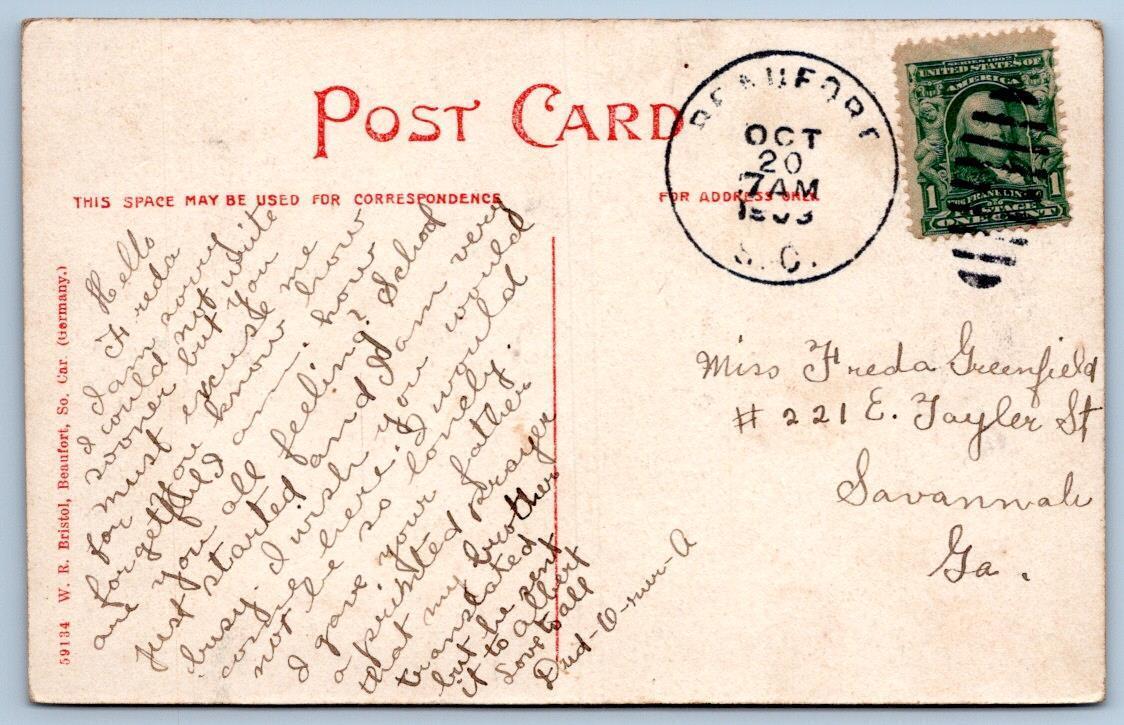 POST CARD
THIS SPACE MAY BE USED FOR CORRESPONDENCE
FOR ADDRESS ONLY
BEAUFORT
OCT
20
7AM
S.C.
SERIES 1902
UNITED STATES OF
AMERICA
FRANKLIN
POSTAGE
1 1
ONE CENT
59134 W. R. Bristol, Beaufort, So. Car. (Germany.)
Hello
Freda
I am sorry
I could not write
sooner but you
must excuse me
for you know how
forgetful I am. how
are you all feeling? School
just started and I am very
busy. I wish you would
come here. I would
not be so lonely.
I gave your father
a printed prayer
that my brother
translated
but he sent
it to albert
Love to all
Miss Freda Greenfield
# 221 E. Tayler St
Savannah
Ga.